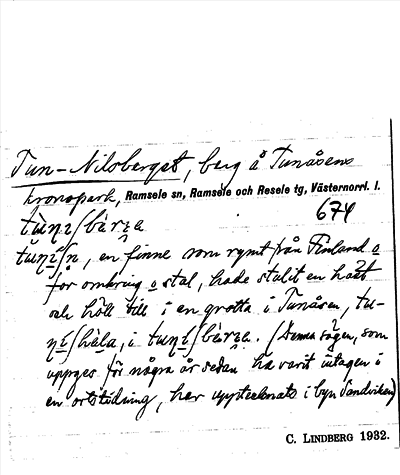 Tun-Nilsberget, berg å Tunåsens
kronopark, Ramsele sn, Ramsele och Resele tg, Västernorrl. l.
674
en finne som rymt från Finland o
for omkring o stal, hade stulit en hätt
och höll till i en grotta i Tunåsen, tu-
i (Denna sägen, som
uppges för några år sedan ha varit intagen i
en ortstidning, har upptecknats i byn Sandviken)
C. LINDBERG 1932.